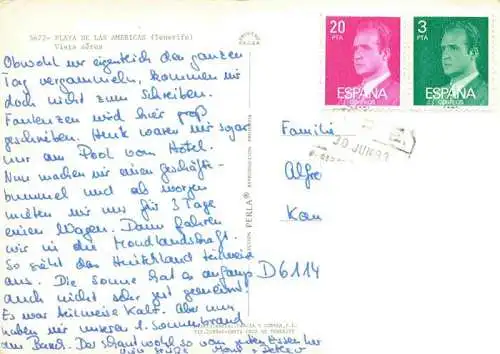 5672- PLAYA DE LAS AMERICAS (Tenerife)
Vista aérea
Obwohl wir eigentlich den ganzen
Tag vergammeln, kommen wir
doch nicht zum Schreiben.
Faulenzen wird hier groß
geschrieben. Heute waren wir sogar
nur am Pool vom Hotel.
Nun machen wir einen Geschäfts-
bummel und ab morgen
mieten wir uns für 3 Tage
einen Wagen. Dann fahren
wir in die Mondlandschaft.
So sieht das Hinterland teilweise
aus. Die Sonne hat es anfangs
auch nicht sehr gut gemeint.
Es war teilweise Kalt. Aber nun
haben wir unseren 1. Sonnenbrand
am Bauch. Das kommt wohl so vom
20
PTA
ESPAÑA
CORREOS
3
PTA
ESPAÑA
CORREOS
30 JUN 83
Familie
D 6114
PERLA